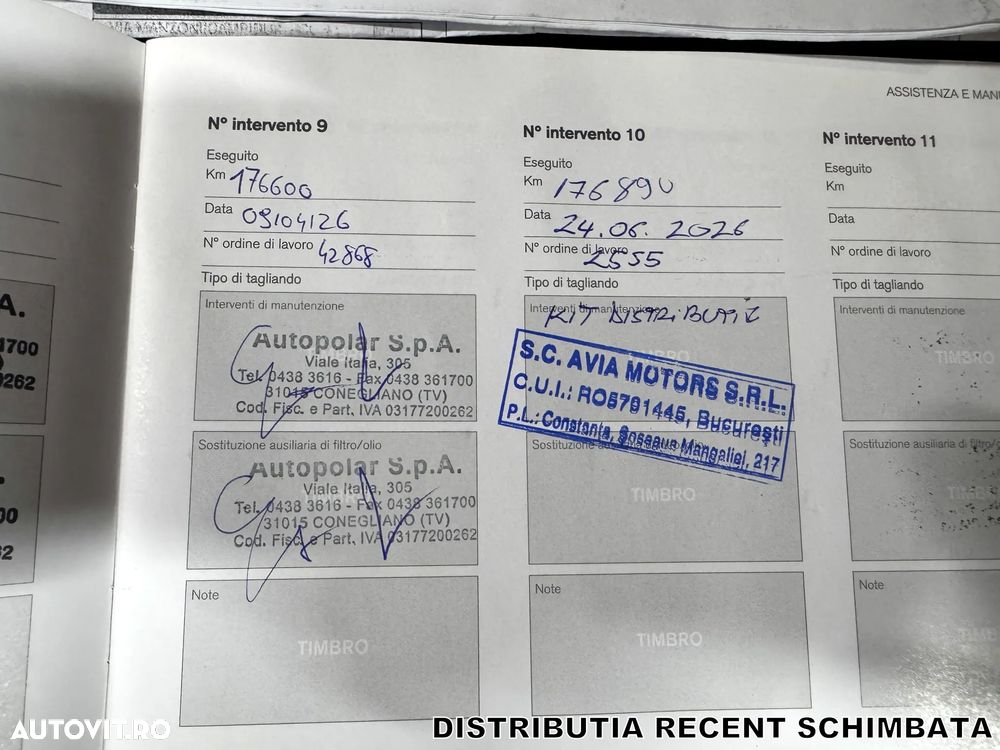 ASSISTENZA E MANU
N° intervento 9
Eseguito
Km 176600
Data 09/04/26
N° ordine di lavoro 42868
Tipo di tagliando
Interventi di manutenzione
Autopolar S.p.A.
Viale Italia, 305
Tel. 0438 3616 - Fax 0438 361700
31015 CONEGLIANO (TV)
Cod. Fisc. e Part. IVA 03177200262
Sostituzione ausiliaria di filtro/olio
Autopolar S.p.A.
Viale Italia, 305
Tel. 0438 3616 - Fax 0438 361700
31015 CONEGLIANO (TV)
Cod. Fisc. e Part. IVA 03177200262
Note
TIMBRO
N° intervento 10
Eseguito
Km 176890
Data 24.06.2026
N° ordine di lavoro 2555
Tipo di tagliando
Interventi di manutenzione
KIT DISTRIBUTIE
S.C. AVIA MOTORS S.R.L.
C.U.I.: RO5791445, Bucuresti
P.L.: Constanta, Soseaua Mangaliei, 217
Sostituzione ausiliaria di filtro/olio
TIMBRO
Note
TIMBRO
N° intervento 11
Eseguito
Km
Data
N° ordine di lavoro
Tipo di tagliando
Interventi di manutenzione
TIMBRO
Sostituzione ausiliaria di filtro/o
Note
A.
1700
0262
00
62
AUTOVIT.RO
DISTRIBUTIA RECENT SCHIMBATA